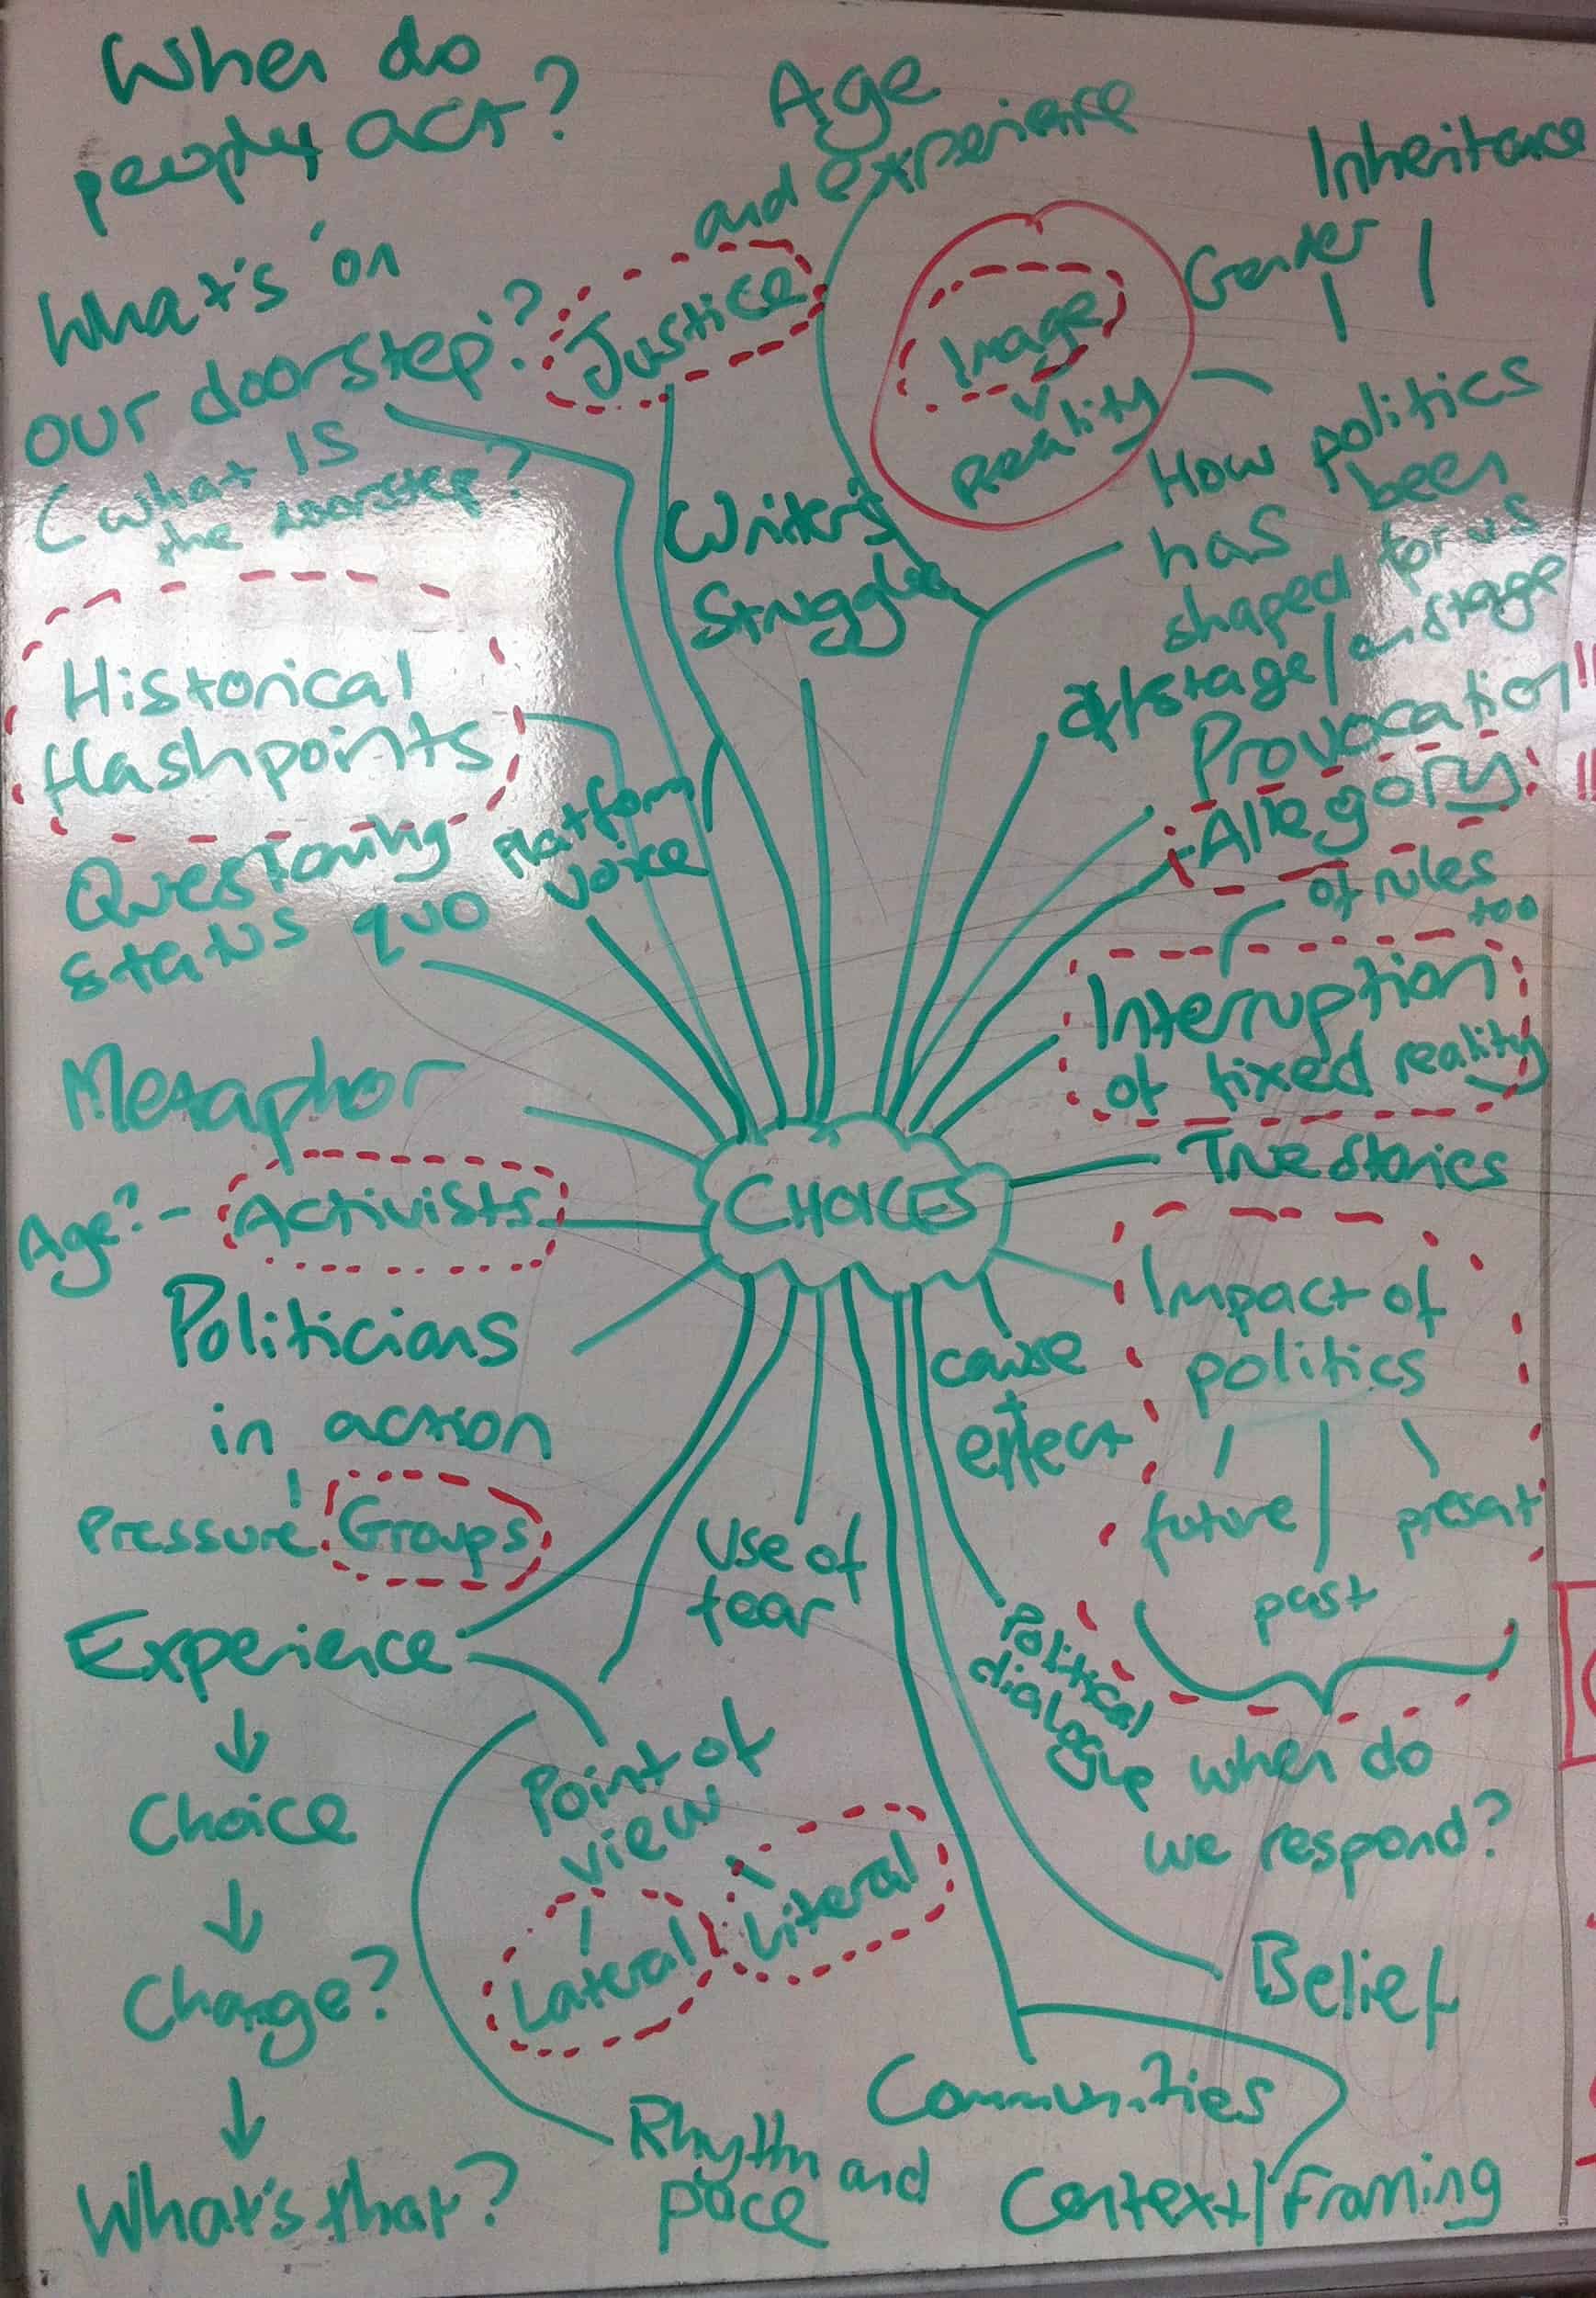 When do
people act?
Age
and experience
Inheritance
Gender
'What's on
our doorstep'?
(what IS
the doorstep?
Justice
Image
v
reality
Writer's
Struggle
How politics
has been
shaped for us
offstage/onstage
Provocation!!
Allegory!!
Historical
flashpoints
Questioning
status quo
Platform/
voice
of rules
too
Interruption
of fixed reality
Metaphor
True stories
CHOICES
Age? - Activists
Impact of
politics
future
past
present
when do
we respond?
Politicians
in action
cause
+
effect
Pressure Groups
Use of
fear
Political
dialogue
Experience
Choice
Change?
What's that?
Point of
view
Lateral
Literal
Belief
Communities
Rhythm and
pace
Context/Framing